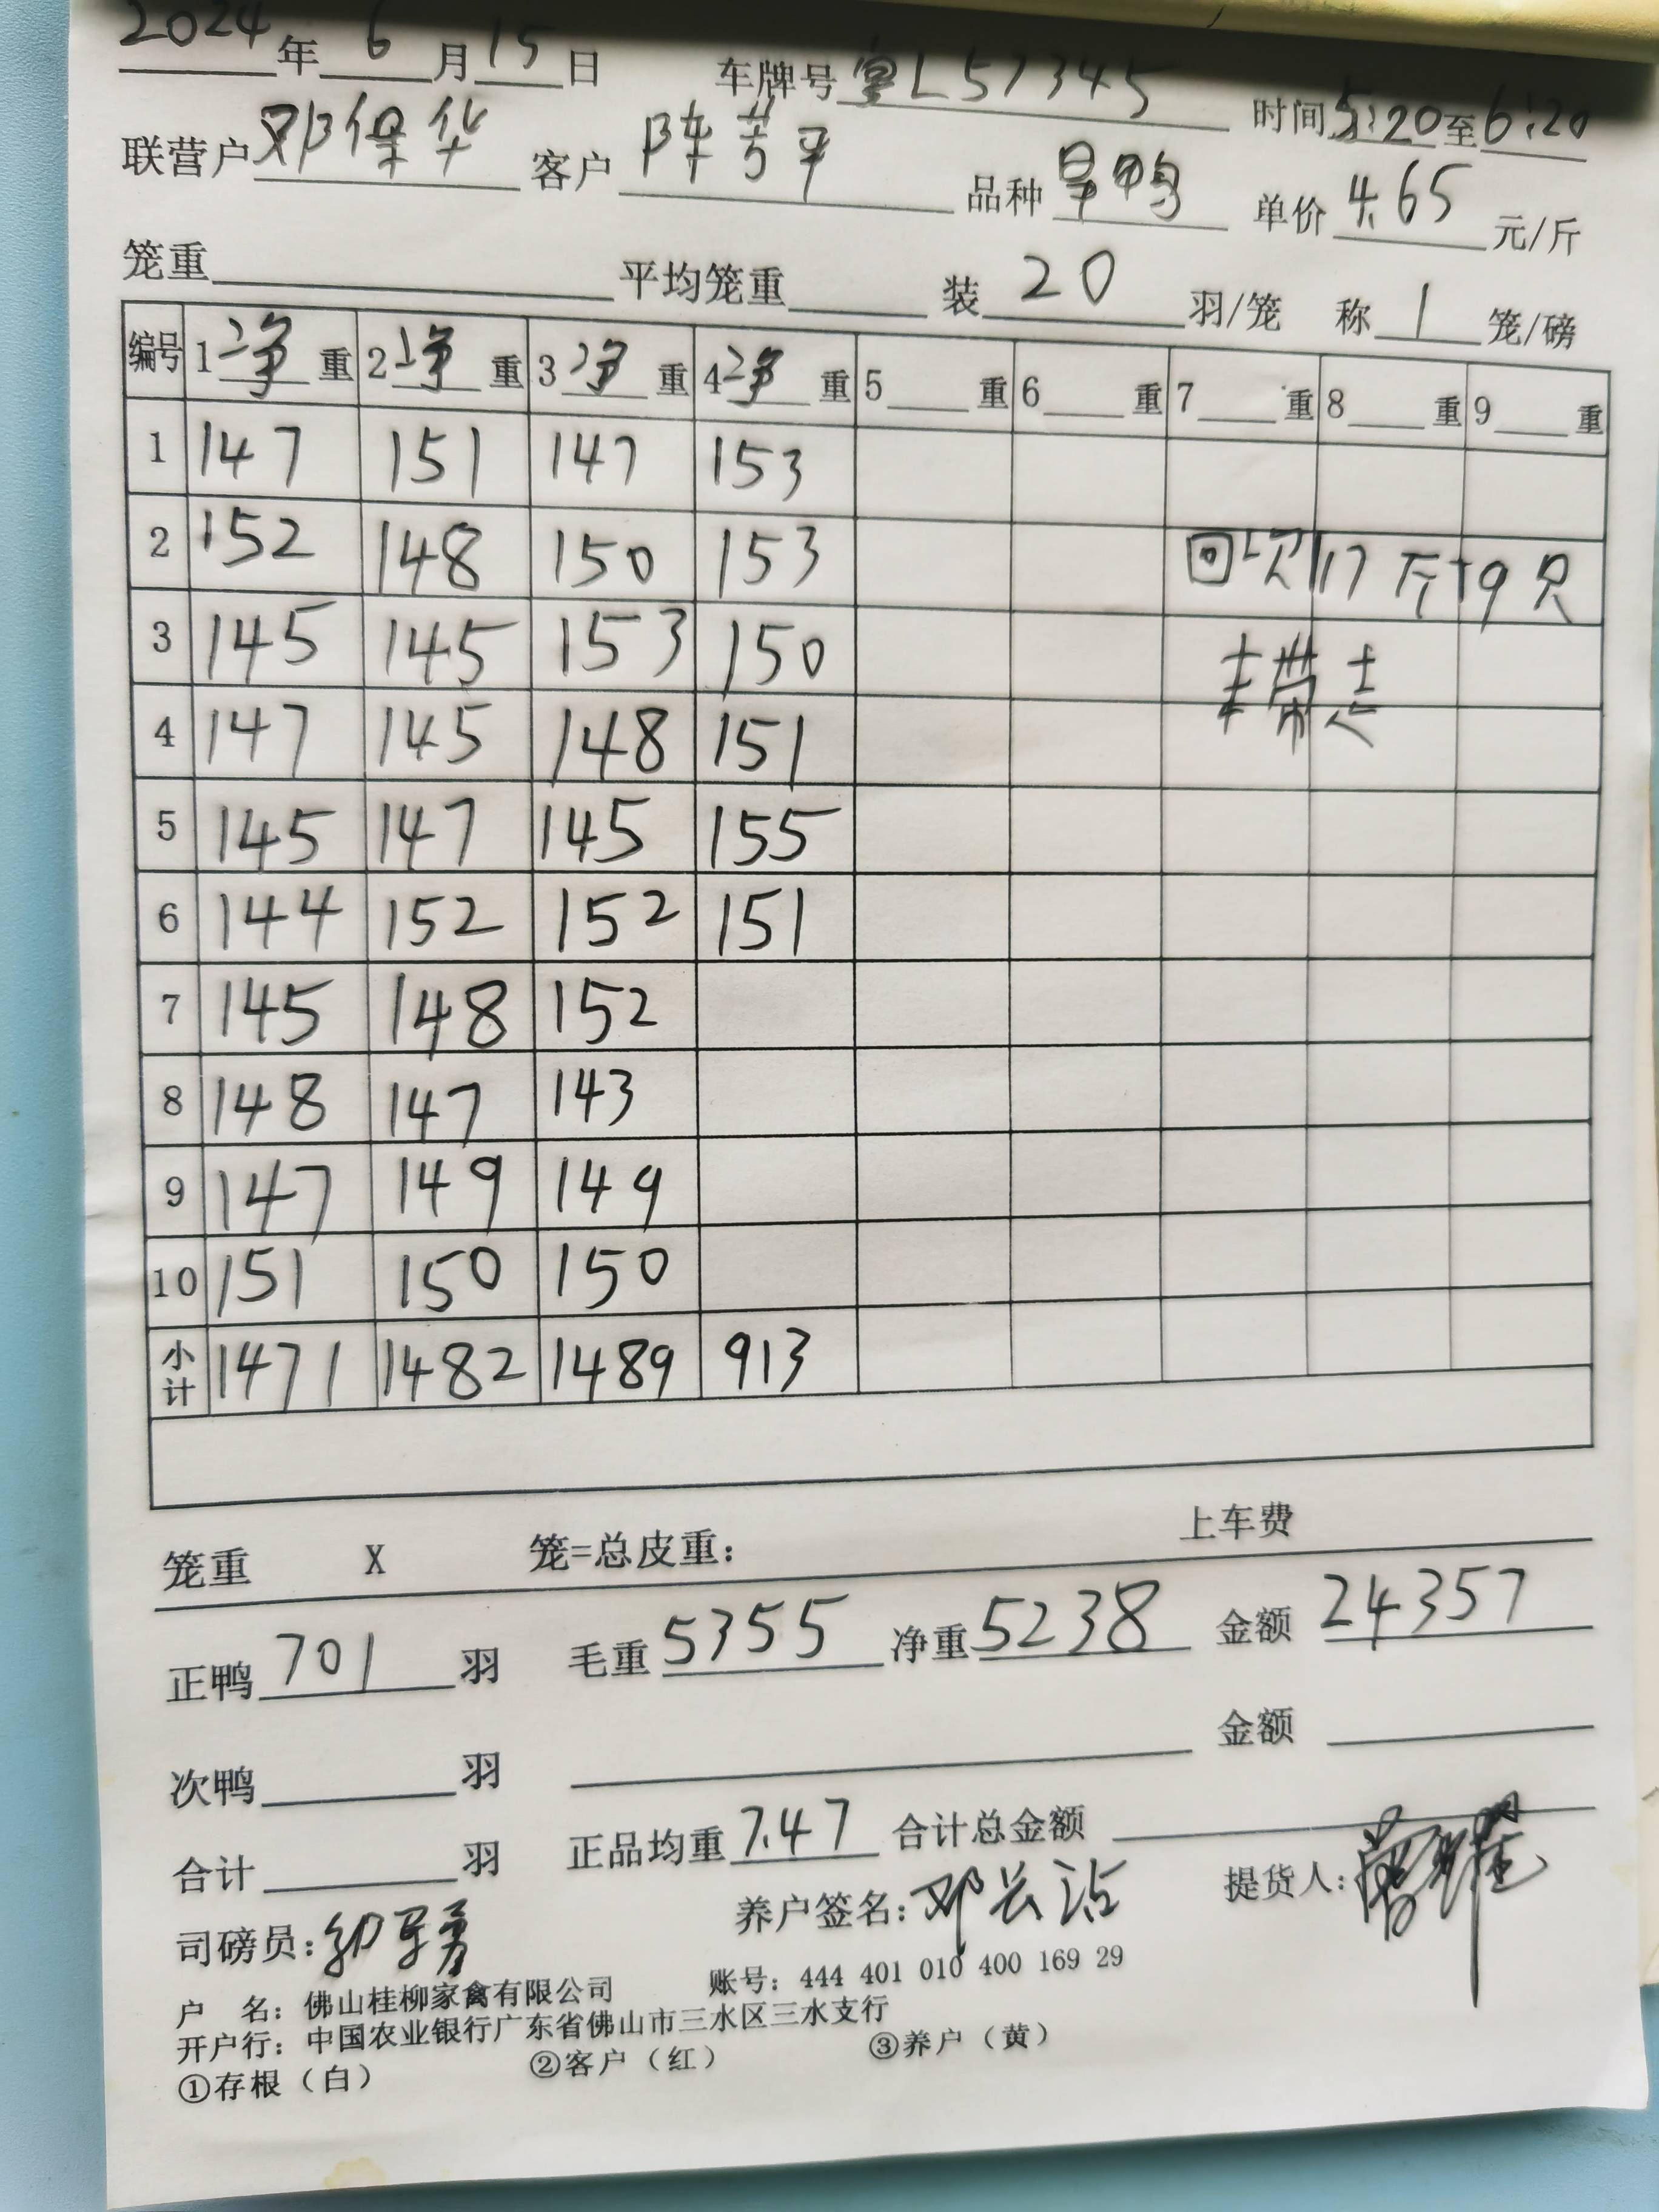 2024年6月15日 车牌号 L57345 时间5:20至6:20
联营户邓保华 客户陈芳平 品种旱鸭 单价4.65元/斤
笼重 平均笼重 装20羽/笼 称1笼/磅
编号 1净重 2净重 3净重 4净重 5重 6重 7重 8重 9重
1 147 151 147 153
2 152 148 150 153 回次117斤19只
3 145 145 153 150 未带走
4 147 145 148 151
5 145 147 145 155
6 144 152 152 151
7 145 148 152
8 148 147 143
9 147 149 149
10 151 150 150
小计 1471 1482 1489 913
笼重 X 笼=总皮重: 上车费
正鸭701羽 毛重5355 净重5238 金额24357
次鸭 羽 金额
合计 羽 正品均重7.47 合计总金额
司磅员: 养户签名:邓长沾 提货人:
户 名：佛山桂柳家禽有限公司 账号：444 401 010 400 169 29
开户行：中国农业银行广东省佛山市三水区三水支行
①存根（白） ②客户（红） ③养户（黄）